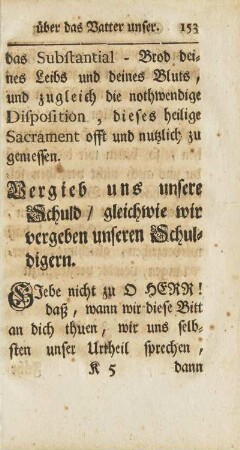 über das Vatter unser. 153
das Substantial-Brod dei-
nes Leibs und deines Bluts,
und zugleich die nothwendige
Disposition, dieses heilige
Sacrament offt und nutzlich zu
geniessen.
Vergieb uns unsere
Schuld / gleichwie wir
vergeben unseren Schul-
digern.
GIebe nicht zu O HERR!
daß, wann wir diese Bitt
an dich thuen, wir uns selb-
sten unser Urtheil sprechen,
K 5 dann